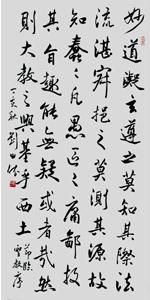 妙道凝玄遵之莫知其際法
流湛寂挹之莫測其源故
知蠢蠢凡愚區區庸鄙投
其旨趣能無疑或者哉然
則大教之興基乎西土
節臨
聖教序
丁亥秋劉